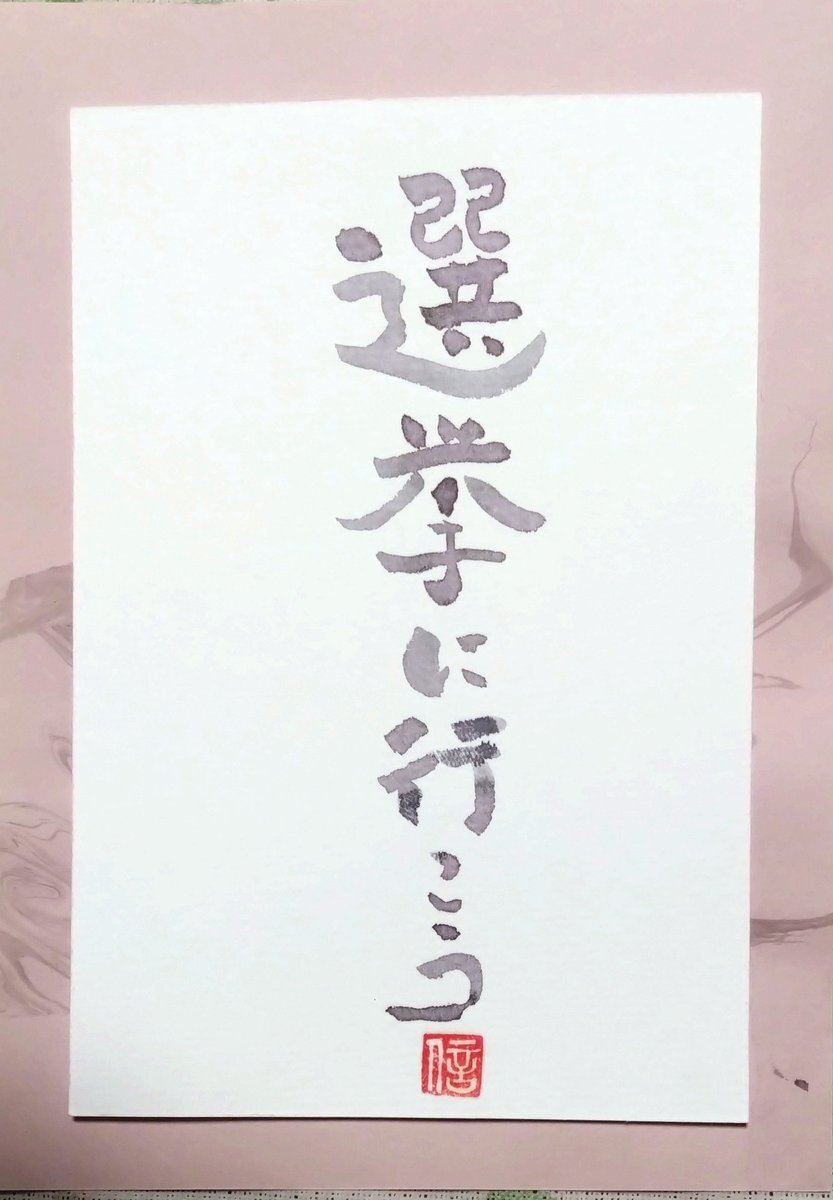 選挙に行こう
信